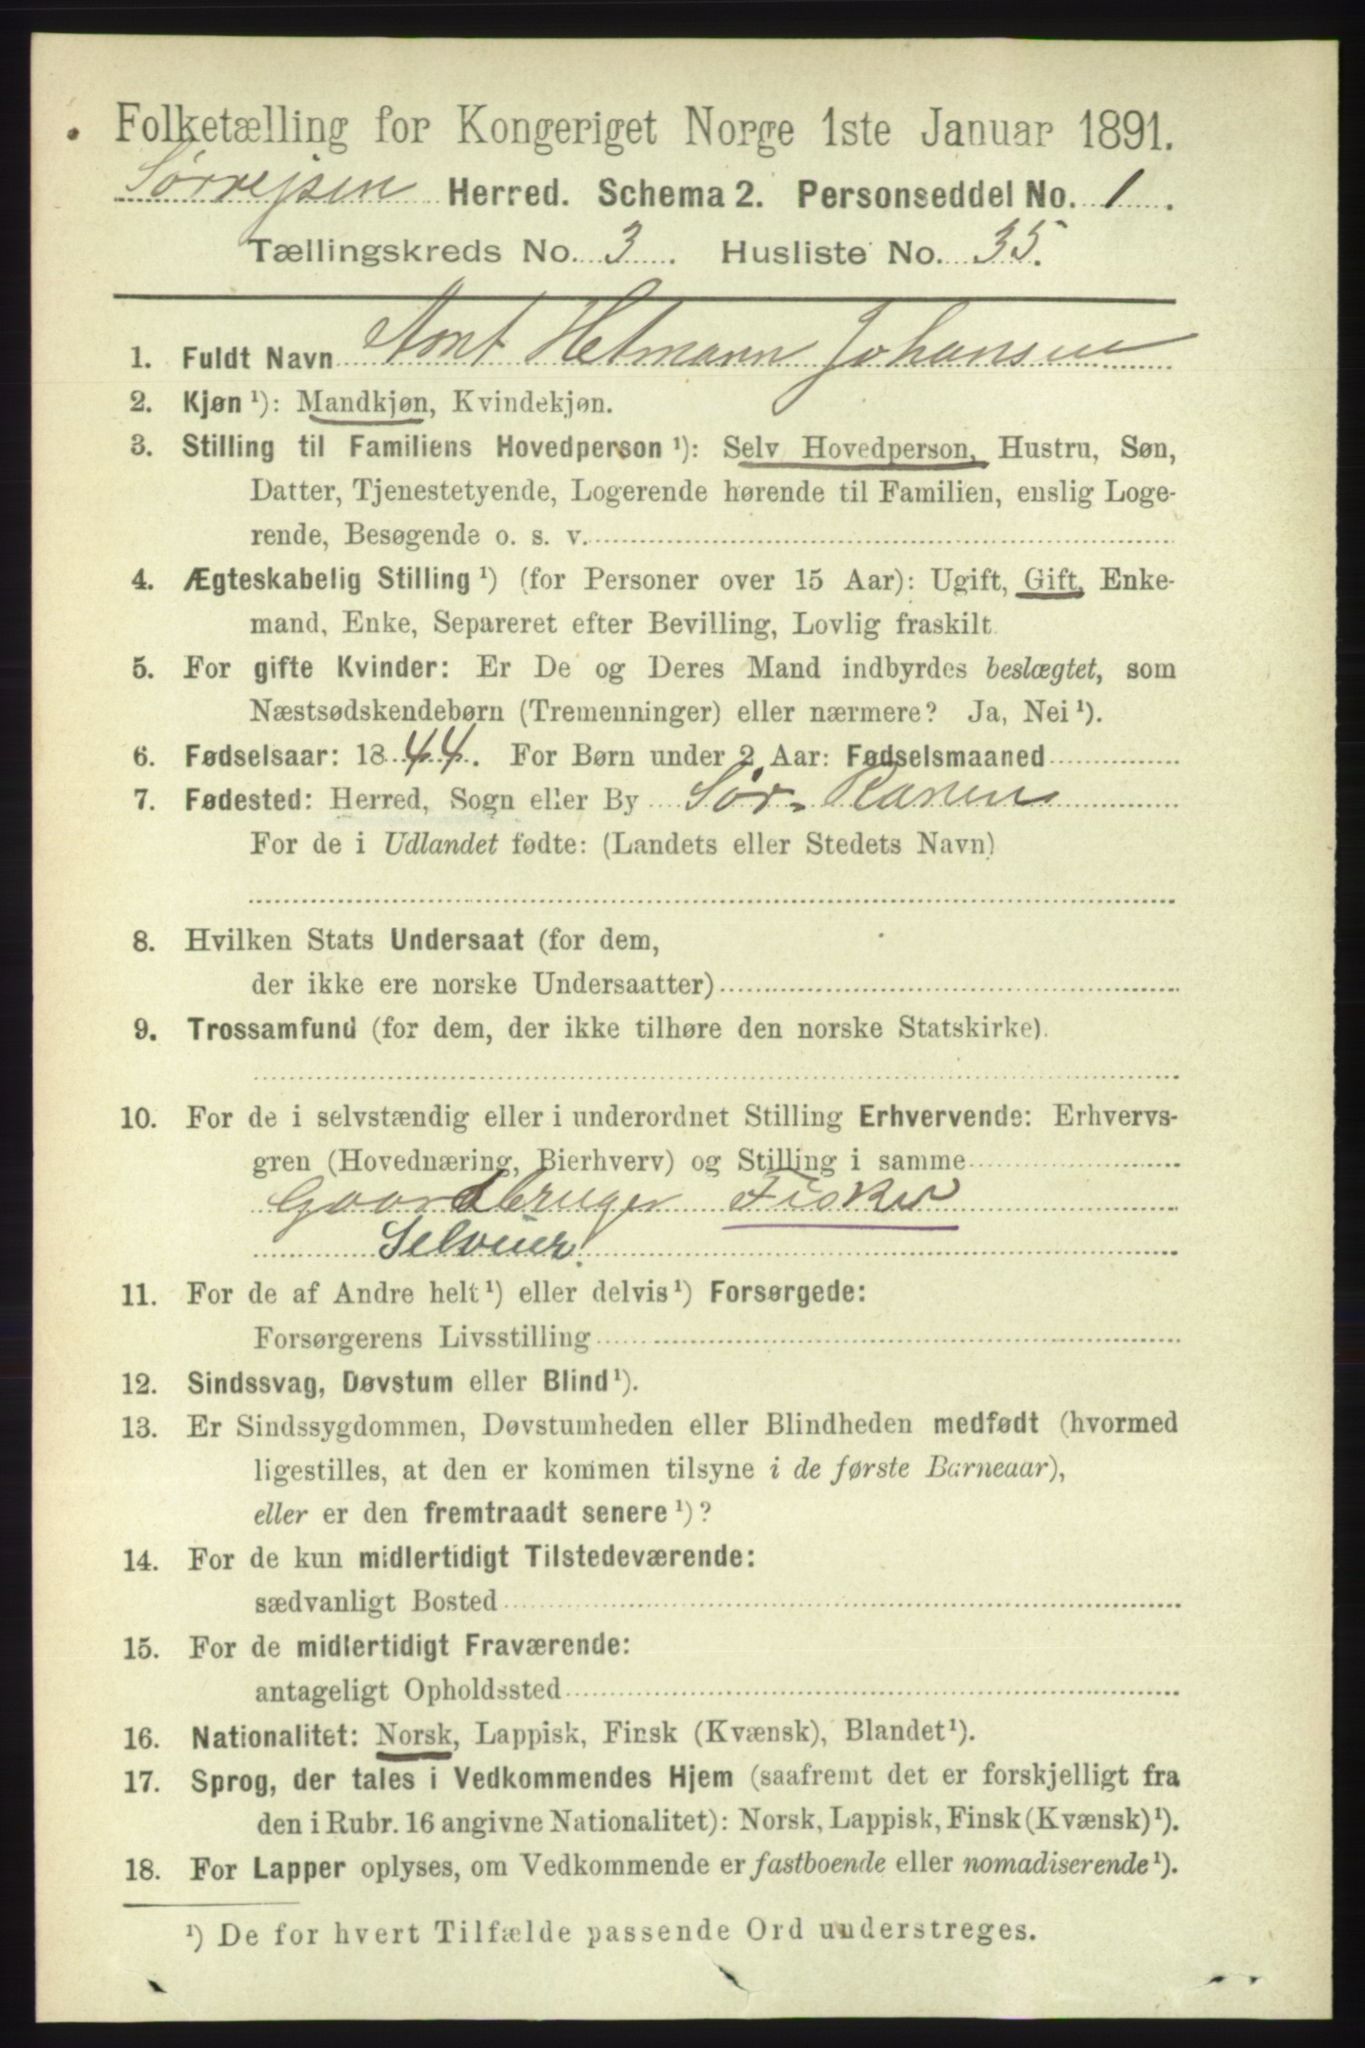 Folketælling for Kongeriget Norge 1ste Januar 1891.
Sørrejsen Herred. Schema 2. Personseddel No. 1.
Tællingskreds No. 3. Husliste No. 35.
1. Fuldt Navn Arnt Hetmann Johansen
2. Kjøn ¹): Mandkjøn, Kvindekjøn.
3. Stilling til Familiens Hovedperson ¹): Selv Hovedperson, Hustru, Søn,
Datter, Tjenestetyende, Logerende hørende til Familien, enslig Loge-
rende, Besøgende o. s. v.
4. Ægteskabelig Stilling ¹) (for Personer over 15 Aar): Ugift, Gift, Enke-
mand, Enke, Separeret efter Bevilling, Lovlig fraskilt
5. For gifte Kvinder: Er De og Deres Mand indbyrdes beslægtet, som
Næstsødskendebørn (Tremenninger) eller nærmere? Ja, Nei ¹).
6. Fødselsaar: 1844. For Børn under 2 Aar: Fødselsmaaned
7. Fødested: Herred, Sogn eller By Sør-Ranen
For de i Udlandet fødte: (Landets eller Stedets Navn)
8. Hvilken Stats Undersaat (for dem,
der ikke ere norske Undersaatter)
9. Trossamfund (for dem, der ikke tilhøre den norske Statskirke).
10. For de i selvstændig eller i underordnet Stilling Erhvervende: Erhvervs-
gren (Hovednæring, Bierhverv) og Stilling i samme
Gaardbruger Fisker
Selveier.
11. For de af Andre helt ¹) eller delvis ¹) Forsørgede:
Forsørgerens Livsstilling
12. Sindssvag, Døvstum eller Blind ¹).
13. Er Sindssygdommen, Døvstumheden eller Blindheden medfødt (hvormed
ligestilles, at den er kommen tilsyne i de første Barneaar),
eller er den fremtraadt senere ¹)?
14. For de kun midlertidigt Tilstedeværende:
sædvanligt Bosted
15. For de midlertidigt Fraværende:
antageligt Opholdssted
16. Nationalitet: Norsk, Lappisk, Finsk (Kvænsk), Blandet ¹).
17. Sprog, der tales i Vedkommendes Hjem (saafremt det er forskjelligt fra
den i Rubr. 16 angivne Nationalitet): Norsk, Lappisk, Finsk (Kvænsk) ¹).
18. For Lapper oplyses, om Vedkommende er fastboende eller nomadiserende ¹).
¹) De for hvert Tilfælde passende Ord understreges.